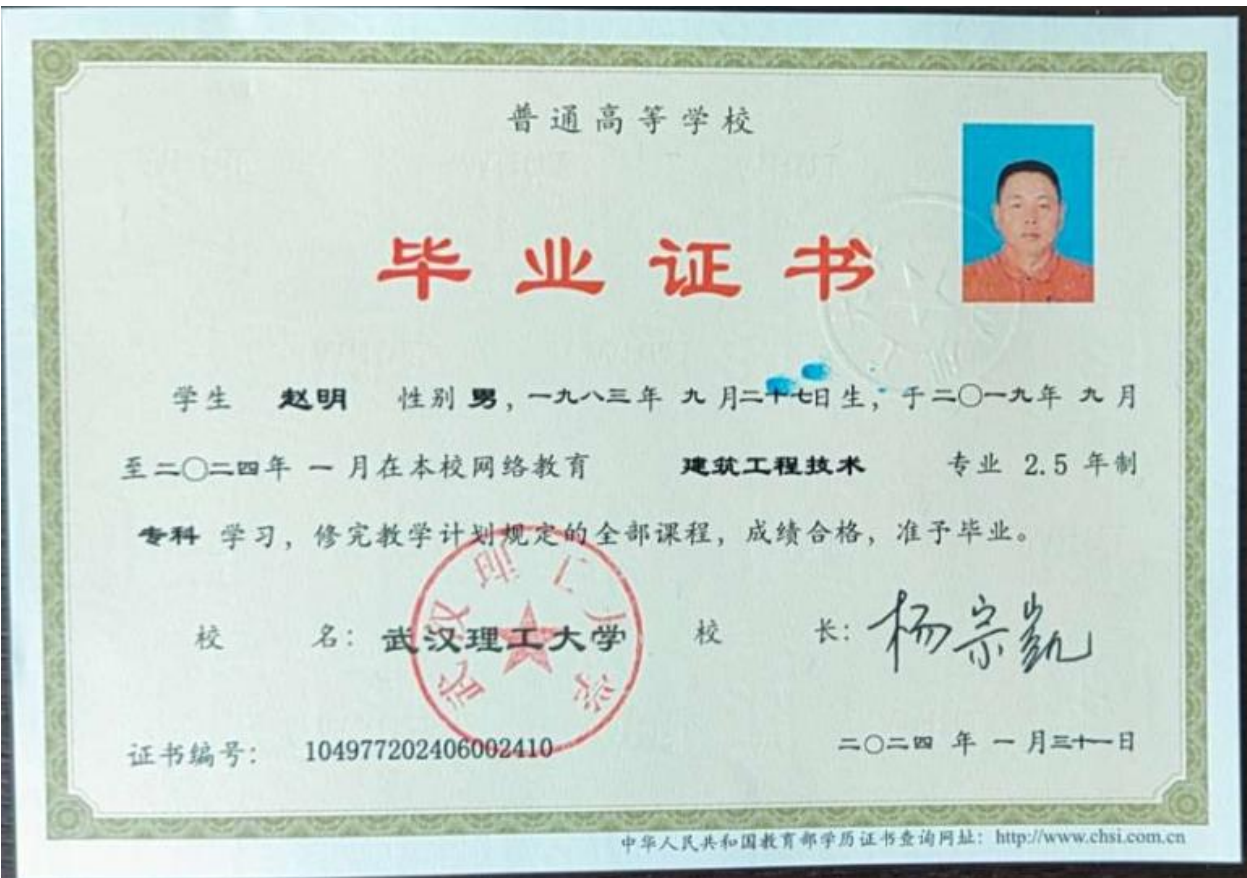 普通高等学校
毕业证书
学生 赵明 性别 男，一九八三年 九 月二十七日生，于二〇一九年 九 月
至二〇二四年 一 月在本校网络教育 建筑工程技术 专业 2.5 年制
专科 学习，修完教学计划规定的全部课程，成绩合格，准予毕业。
校 名：武汉理工大学 校 长：杨宗凯
武汉理工大学
证书编号： 104977202406002410 二〇二四 年 一 月三十一日
中华人民共和国教育部学历证书查询网址：http://www.chsi.com.cn